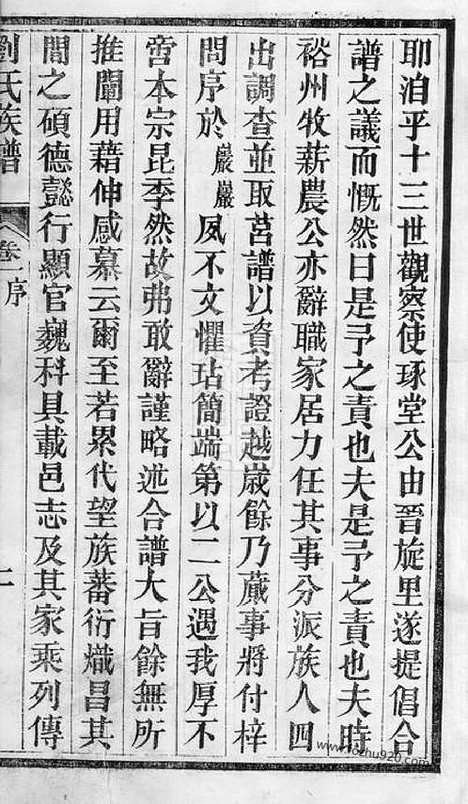 耶洎乎十三世觀察使琢堂公由晉旋里遂提倡合
譜之議而慨然曰是予之責也夫是予之責也夫時
裕州牧薪農公亦辭職家居力任其事分派族人四
出調查並取莒譜以資考證越歲餘乃蕆事將付梓
問序於巖巖夙不文懼玷簡端第以二公遇我厚不
啻本宗昆季然故弗敢辭謹略述合譜大旨餘無所
推闡用藉伸感慕云爾至若累代望族蕃衍熾昌其
間之碩德懿行顯官巍科具載邑志及其家乘列傳
劉氏族譜 卷一序 二
www.fozhu920.com